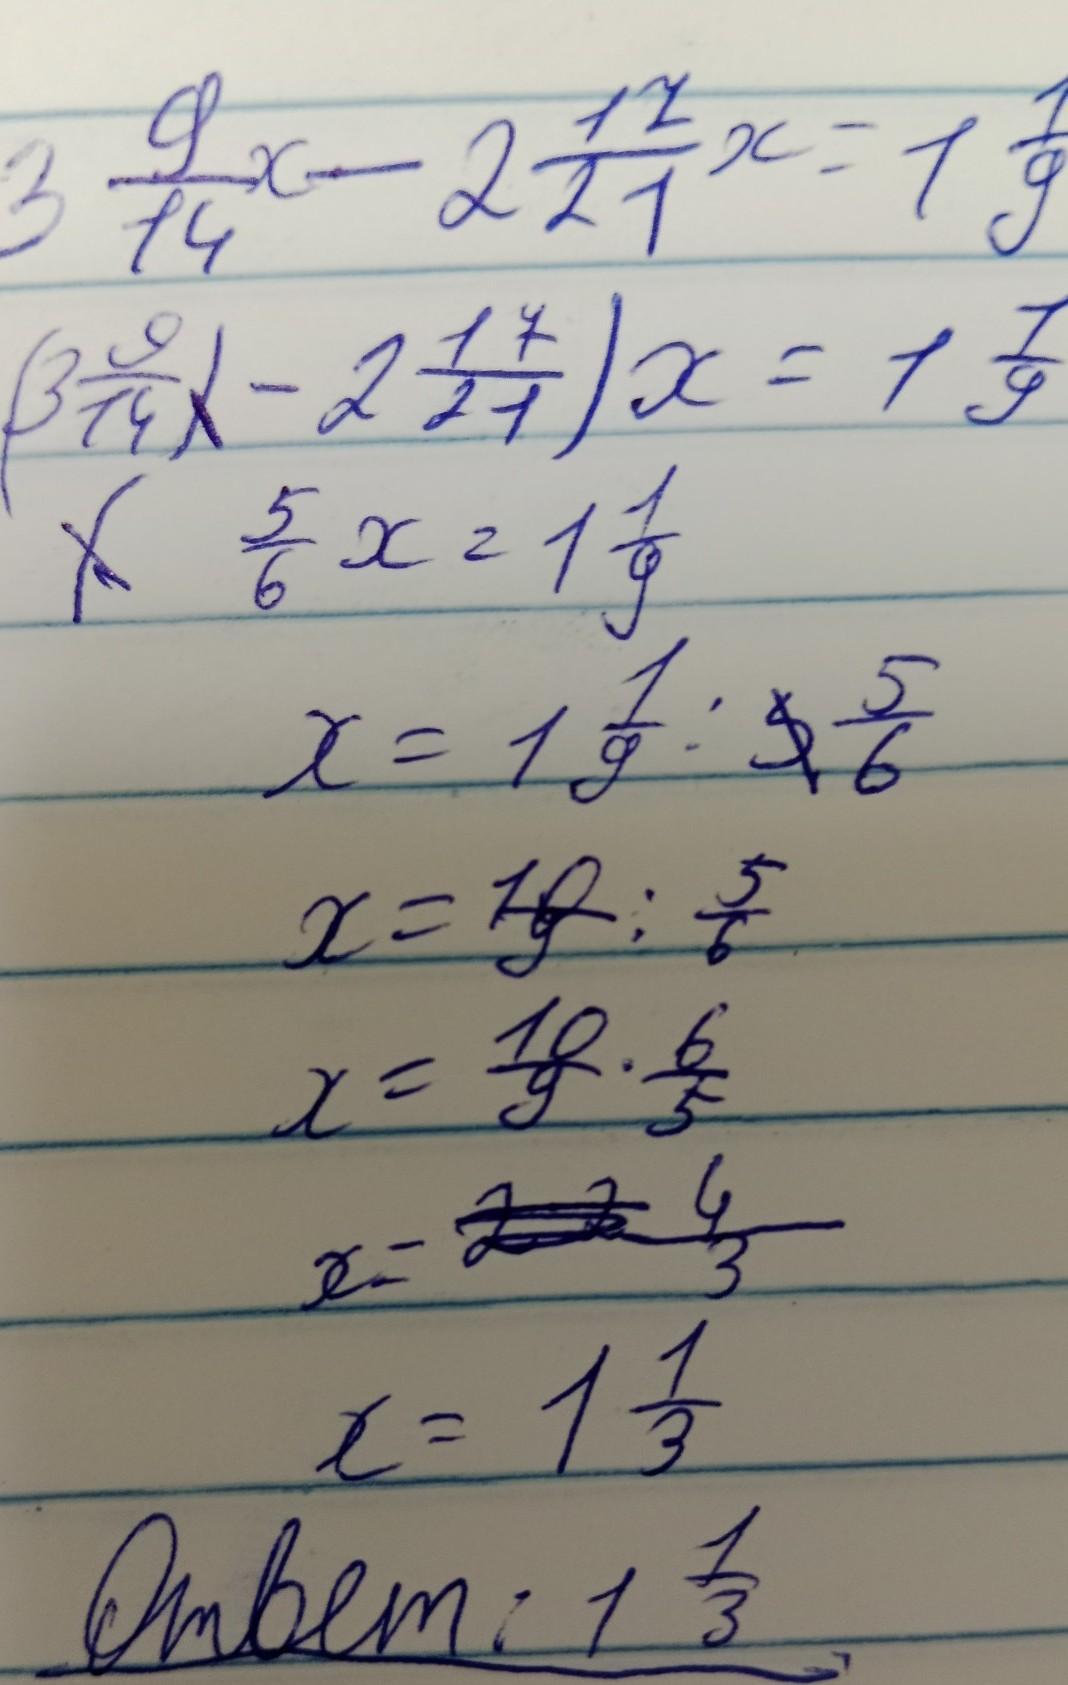 3 9/14 x - 2 17/21 x = 1 1/9
(3 9/14 - 2 17/21) x = 1 1/9
5/6 x = 1 1/9
x = 1 1/9 : 5/6
x = 10/9 : 5/6
x = 10/9 · 6/5
x = 4/3
x = 1 1/3
Ответ: 1 1/3